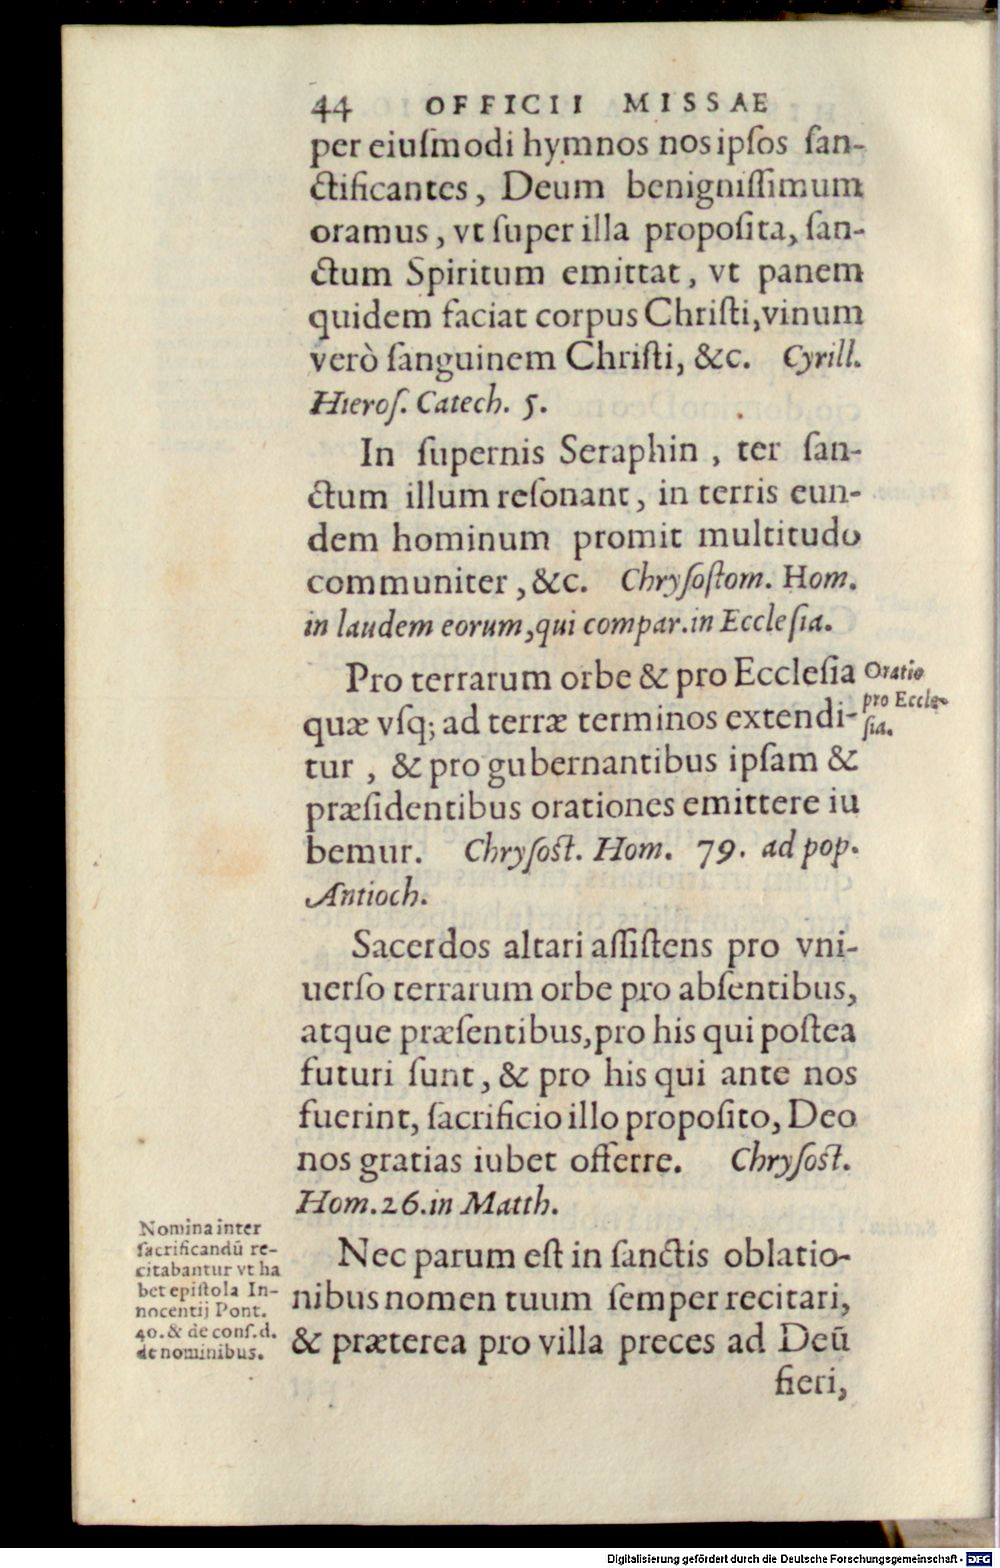 44 OFFICII MISSAE
per eiuſmodi hymnos nos ipſos ſan-
ctificantes, Deum benigniſſimum
oramus, vt ſuper illa propoſita, ſan-
ctum Spiritum emittat, vt panem
quidem faciat corpus Chriſti, vinum
verò ſanguinem Chriſti, &c. Cyrill.
Hieroſ. Catech. 5.
In ſupernis Seraphin, ter ſan-
ctum illum reſonant, in terris eun-
dem hominum promit multitudo
communiter, &c. Chryſoſtom. Hom.
in laudem eorum, qui compar. in Eccleſia.
Pro terrarum orbe & pro Eccleſia
quæ vſq; ad terræ terminos extendi-
tur, & pro gubernantibus ipſam &
præſidentibus orationes emittere iu
bemur. Chryſoſt. Hom. 79. ad pop.
Antioch.
Oratio
pro Eccle-
ſia.
Sacerdos altari aſſiſtens pro vni-
uerſo terrarum orbe pro abſentibus,
atque præſentibus, pro his qui poſtea
futuri ſunt, & pro his qui ante nos
fuerint, ſacrificio illo propoſito, Deo
nos gratias iubet offerre. Chryſoſt.
Hom. 26. in Matth.
Nomina inter
ſacrificandū re-
citabantur vt ha
bet epiſtola In-
nocentij Pont.
40. & de conſ. d.
de nominibus.
Nec parum eſt in ſanctis oblatio-
nibus nomen tuum ſemper recitari,
& præterea pro villa preces ad Deū
fieri,
Digitalisierung gefördert durch die Deutsche Forschungsgemeinschaft - DFG